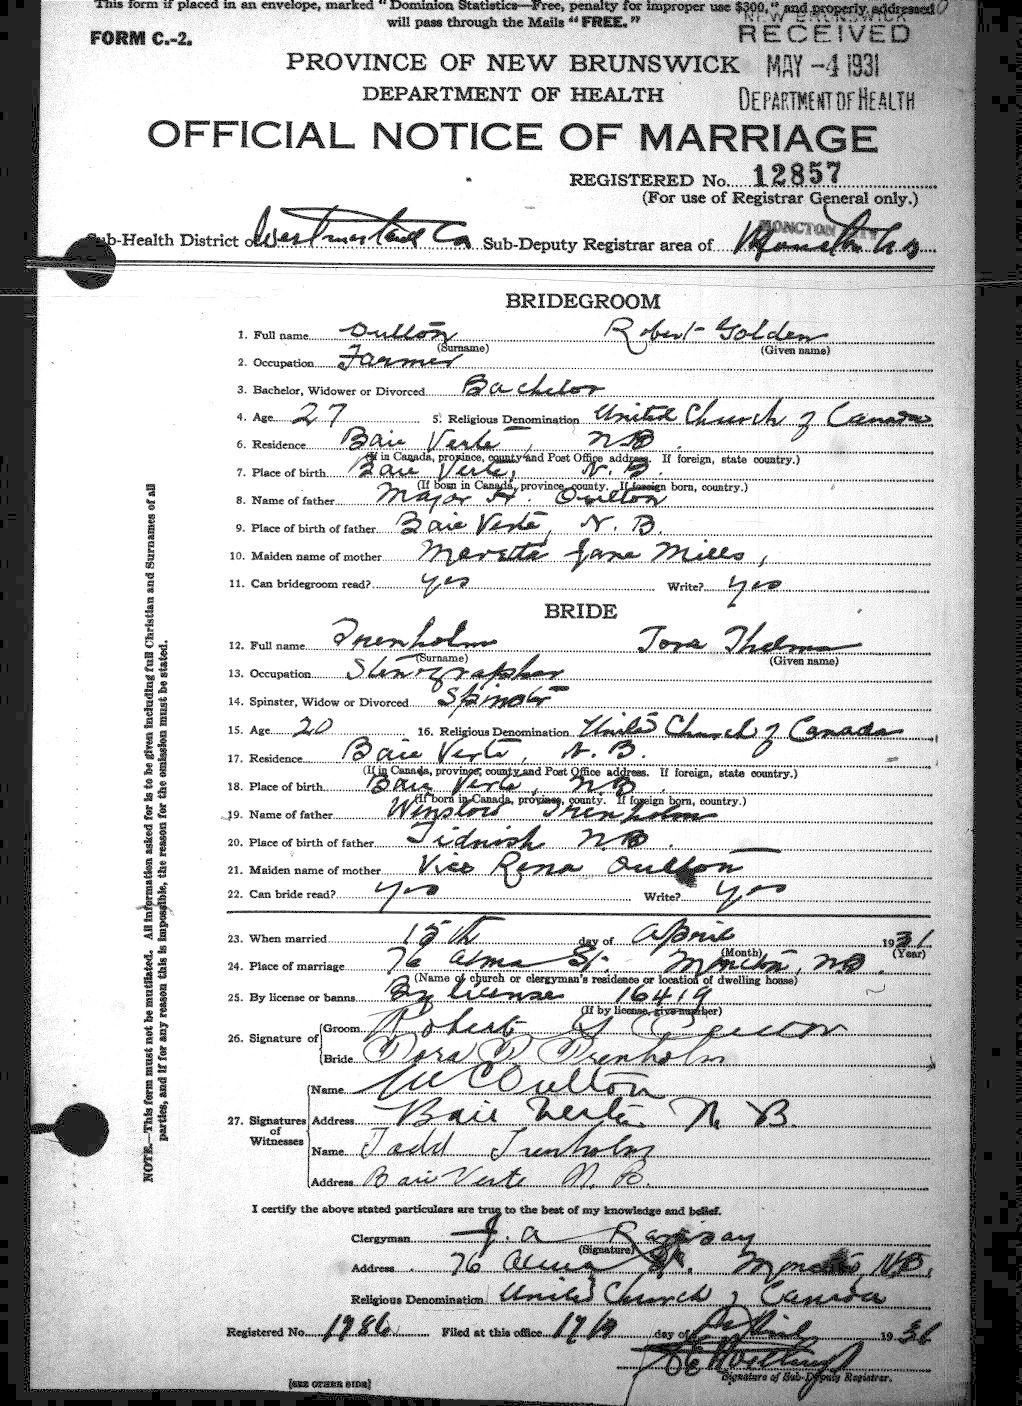 This form if placed in an envelope, marked "Dominion Statistics—Free, penalty for improper use $300," and properly addressed
will pass through the Mails "FREE."
FORM C.-2.
NEW BRUNSWICK
RECEIVED
MAY -4 1931
DEPARTMENT OF HEALTH
PROVINCE OF NEW BRUNSWICK
DEPARTMENT OF HEALTH
OFFICIAL NOTICE OF MARRIAGE
REGISTERED No. 12857
(For use of Registrar General only.)
Sub-Health District of Westmorland Co Sub-Deputy Registrar area of MONCTON
BRIDEGROOM
1. Full name Oulton Robert Golden
(Surname) (Given name)
2. Occupation Farmer
3. Bachelor, Widower or Divorced Bachelor
4. Age 27 5. Religious Denomination United Church of Canada
6. Residence Baie Verte, N B
(If in Canada, province, county and Post Office address. If foreign, state country.)
7. Place of birth Baie Verte, N. B.
(If born in Canada, province, county. If foreign born, country.)
8. Name of father Major H. Oulton
9. Place of birth of father Baie Verte, N. B.
10. Maiden name of mother Maretta Jane Mills,
11. Can bridegroom read? yes Write? yes
BRIDE
12. Full name Trenholm Thelma
(Surname) (Given name)
13. Occupation Stenographer
14. Spinster, Widow or Divorced Spinster
15. Age 20 16. Religious Denomination United Church of Canada
17. Residence Baie Verte, N. B.
(If in Canada, province, county and Post Office address. If foreign, state country.)
18. Place of birth Baie Verte, N B
(If born in Canada, province, county. If foreign born, country.)
19. Name of father Winslow Trenholm
20. Place of birth of father Tidnish N B.
21. Maiden name of mother Rena Oulton
22. Can bride read? yes Write? yes
23. When married 15th day of April 1931
(Month) (Year)
24. Place of marriage 76 Alma St. Moncton, N B.
(Name of church or clergyman's residence or location of dwelling house)
25. By license or banns By license 16419
(If by license, give number)
26. Signature of
Groom Robert G Oulton
Bride Trenholm
27. Signatures of Witnesses
Name Oulton
Address Baie Verte N. B.
Name Todd Trenholm
Address Baie Verte N. B.
I certify the above stated particulars are true to the best of my knowledge and belief.
Clergyman J. A Ramsay
(Signature)
Address 76 Alma St. Moncton, N.B.
Religious Denomination United Church of Canada
Registered No. 1986 Filed at this office 17th day of April 19
Signature of Sub-Deputy Registrar.
[SEE OTHER SIDE]
NOTE.—This form must not be mutilated. All information asked for is to be given including full Christian and Surnames of all
parties, and if for any reason this is impossible, the reason for the omission must be stated.